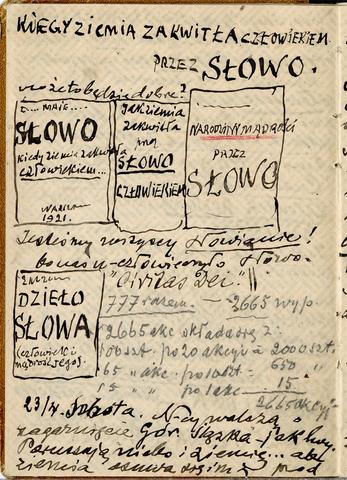 KIEDY ZIEMIA ZAKWITŁA CZŁOWIEKIEM
PRZEZ SŁOWO.
może to będzie dobre?
MAIE
SŁOWO
kiedy ziemia zakwitła
człowiekiem...
1921.
JAK ZIEMIA
zakwitła
SŁOWO
CZŁOWIEKIEM
NARODZINY MĄDROŚCI
PRZEZ
SŁOWO
Jesteśmy wszyscy Słowianie!
bo nas uczłowieczyło Słowo.
"Civitas Dei"
DZIEŁO
SŁOWA
(człowieka i
mądrość jego)
777 razem — 2665 wyp.
2665 akc składa się z:
100 szt. po 20 akcyi = 2000 szt.
65 " akc. po 10 szt = 650 "
15 " po 1 akc — 15.
2665 akcyj
23/ . Sobota. Niby walczą o
zagarnięcie Gór. Śląska -
Poruszają niebo i ziemię... aby
ziemia pod